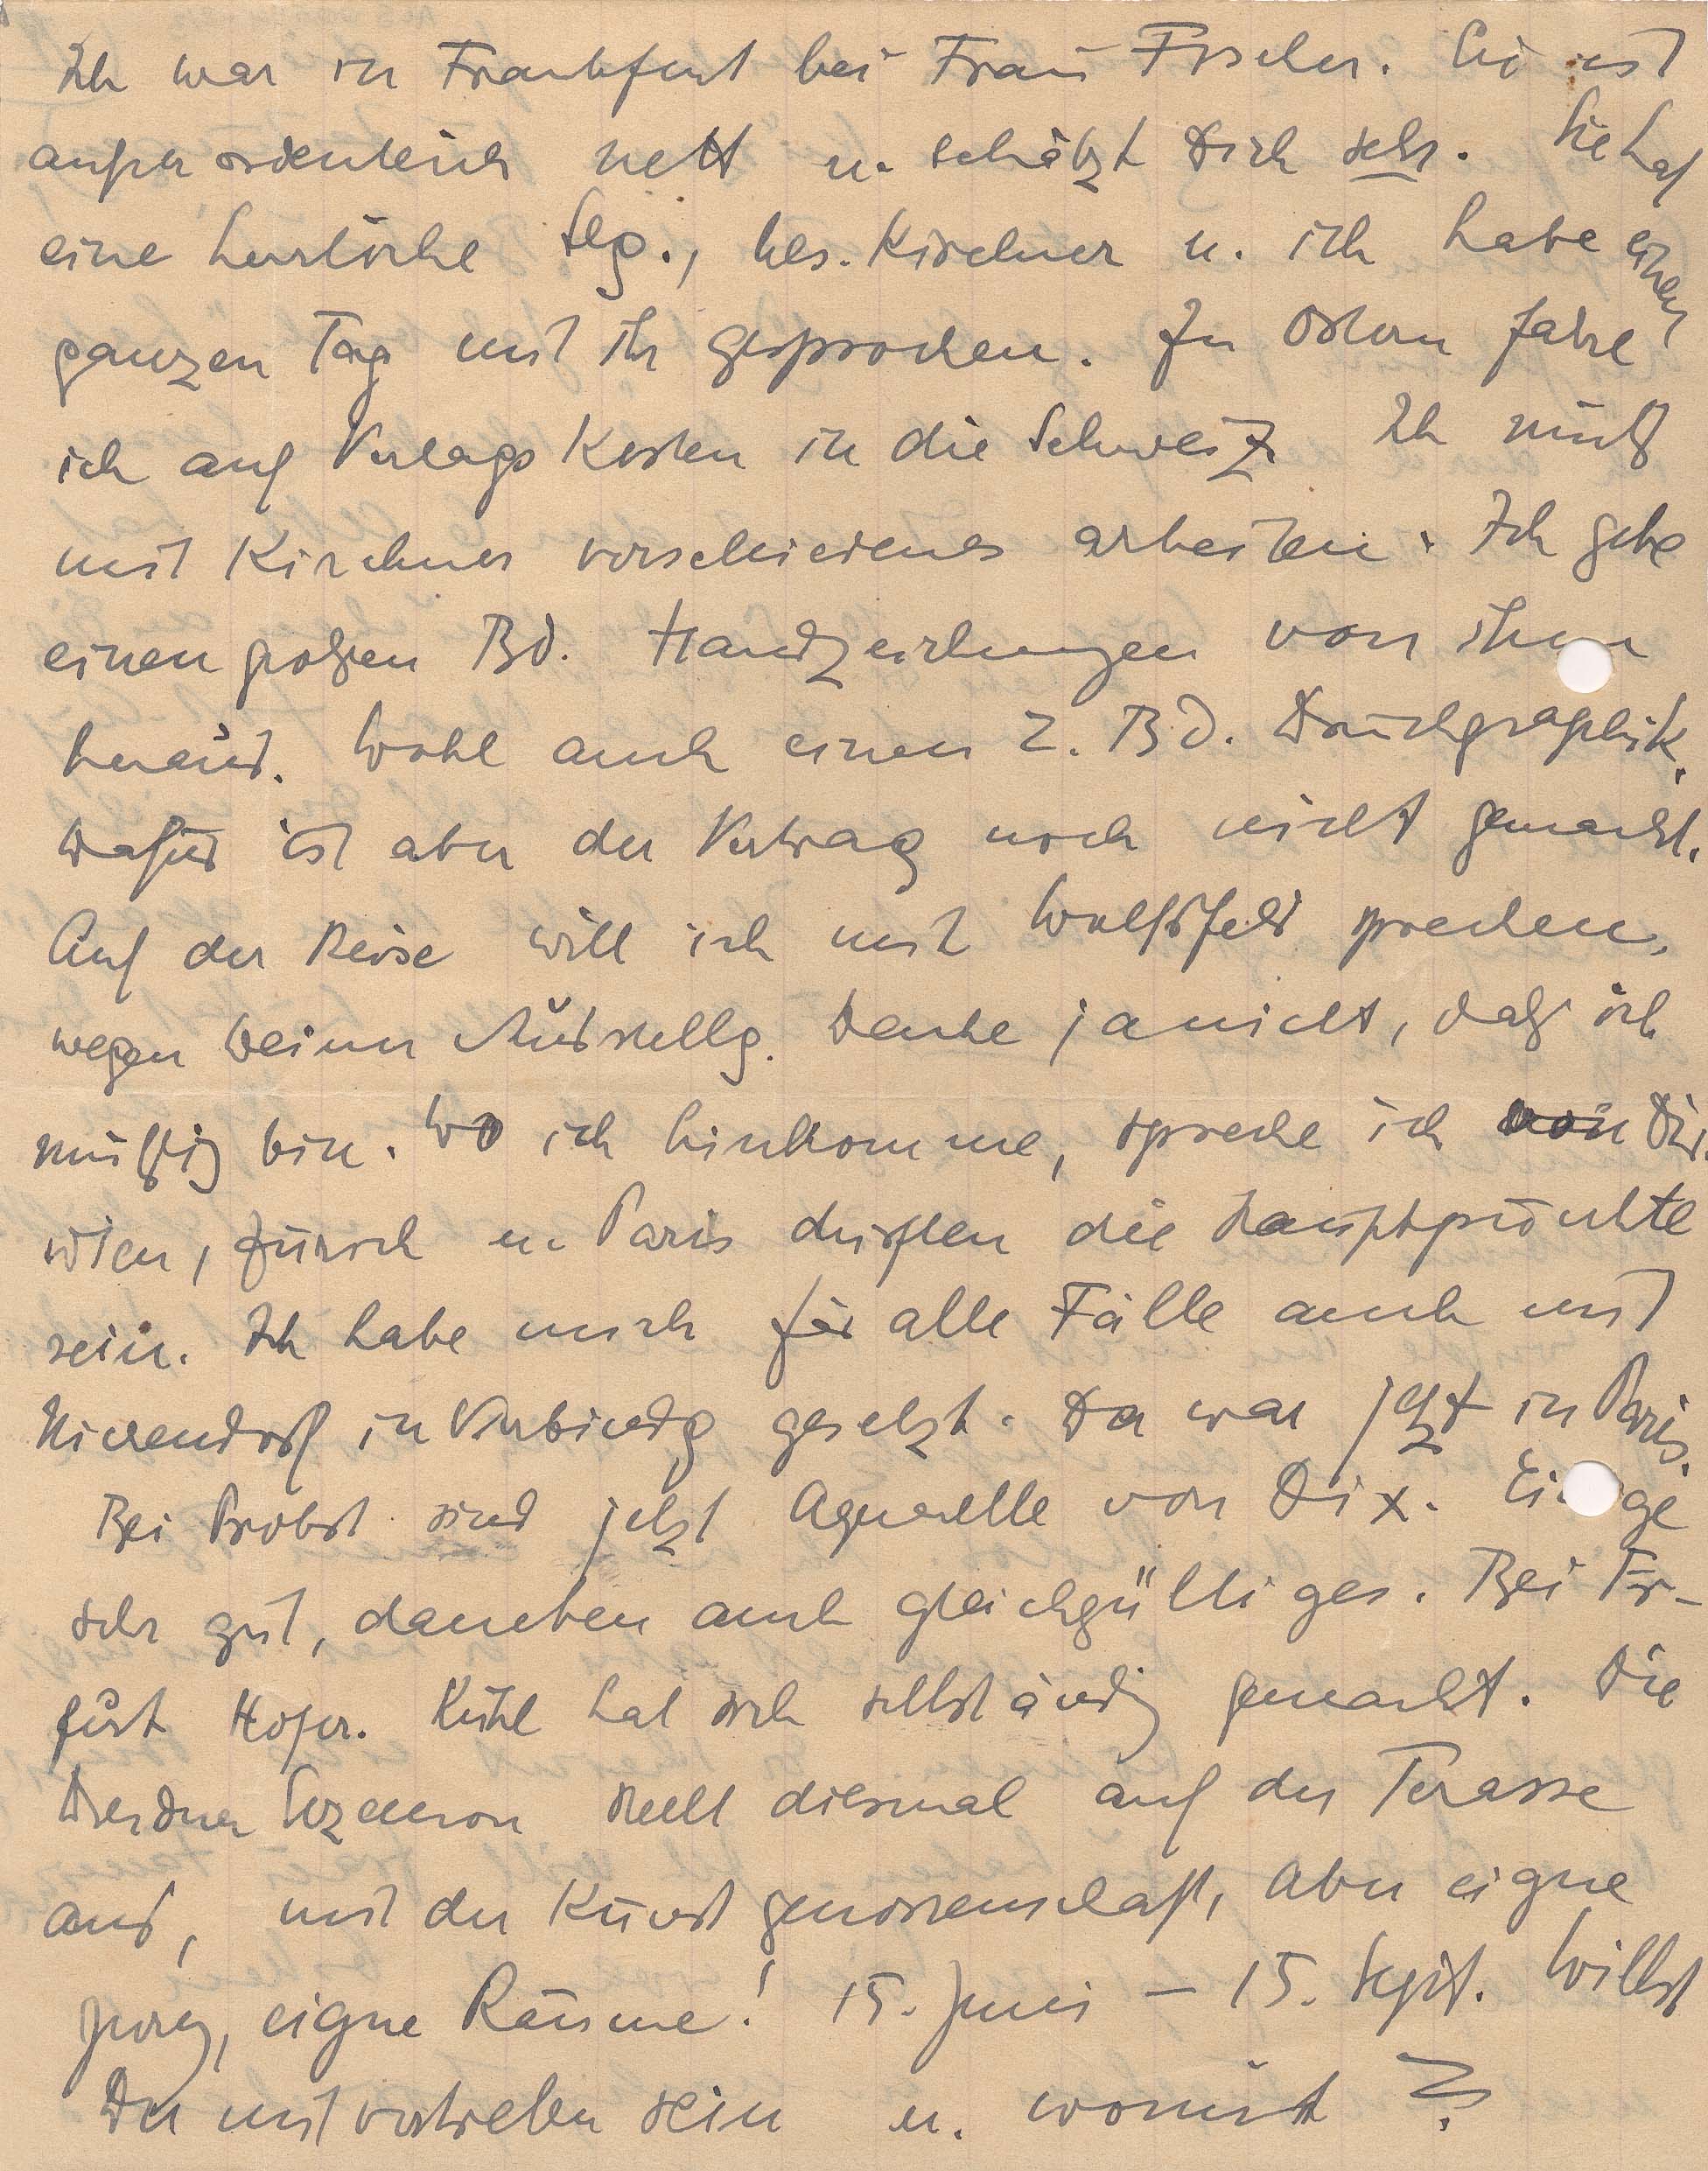 Ich war in Frankfurt bei Frau Fischer. Sie ist
außerordentlich nett u. schätzt Dich sehr. Sie hat
eine herrliche Slg., bes. Kirchner u. ich habe einen
ganzen Tag mit ihr gesprochen. Zu Ostern fahre
ich auf Verlags Kosten in die Schweiz Ich muß
mit Kirchner verschiedenes arbeiten. Ich gebe
einen großen Bd. Handzeichnungen von ihm
heraus. Wohl auch einen 2. Bd. Druckgraphik.
Dafür ist aber der Vertrag noch nicht gemacht.
Auf der Reise will ich mit Wolfsfeld sprechen,
wegen Deiner Ausstellg. Denke ja nicht, daß ich
müßig bin. Wo ich hinkomme, spreche ich von Dir.
Wien, Zürich u. Paris dürften die Hauptpunkte
sein. Ich habe mich für alle Fälle auch mit
Nierendorf in Verbindg gesetzt. Der war jetzt in Paris.
Bei Probst sind jetzt Aquarelle von Dix. Einige
sehr gut, daneben auch gleichgültiges. Bei Er-
furt Hofer. Kühl hat sich selbständig gemacht. Die
Dresdner Sezession stellt diesmal auf der Terasse
aus, mit der Kunstgenossenschaft, aber eigne
Jury, eigne Räume! 15. Juni – 15. Sept. Willst
Du mit vertreten sein u. womit?